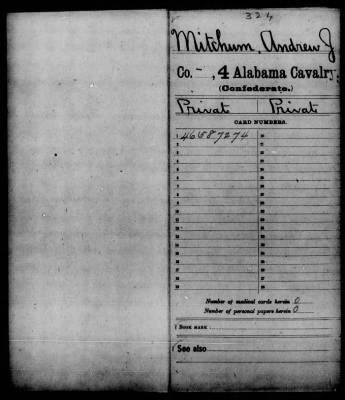 324
Mitchum, Andrew J
Co. - , 4 Alabama Cavalry.
(Confederate.)
Privat | Privat
CARD NUMBERS.
1 46587274
Number of medical cards herein 0
Number of personal papers herein 0
BOOK MARK:
See also